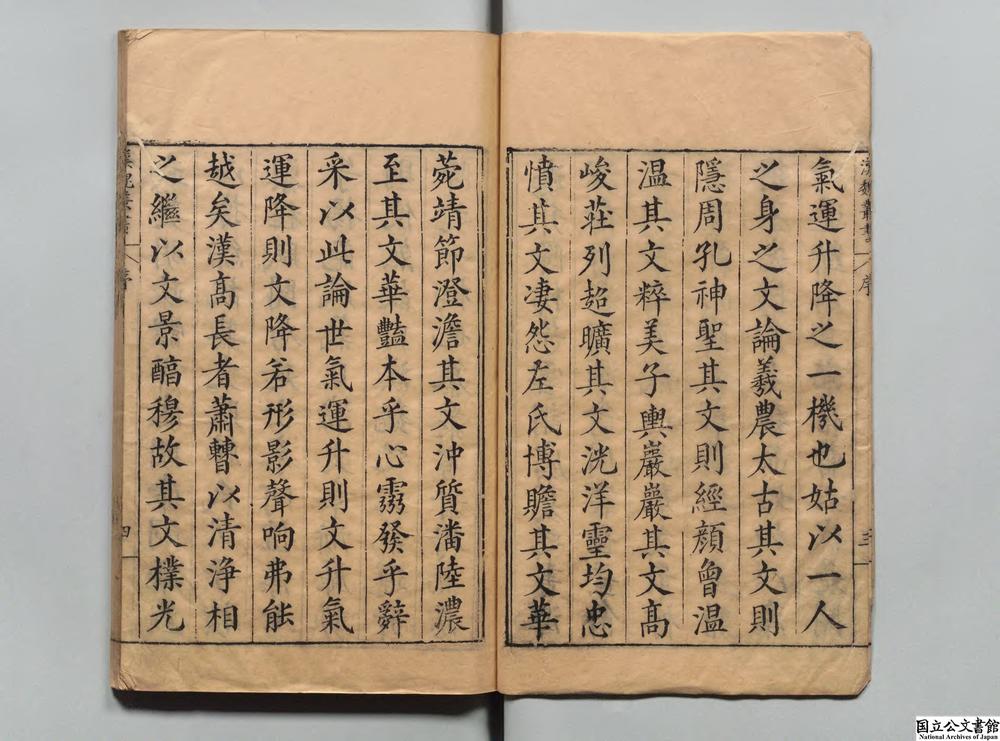 漢魏叢書
序
三
氣運升降之一機也姑以一人
之身之文論羲農太古其文則
隱周孔神聖其文則經顏曾溫
温其文粹美子輿巖巖其文高
峻莊列超曠其文洸洋靈均忠
憤其文凄怨左氏博贍其文華
菀靖節澄澹其文沖質潘陸濃
至其文華豔本乎心靈發乎辭
采以此論世氣運升則文升氣
運降則文降若形影聲响弗能
越矣漢高長者蕭曹以清浄相
之繼以文景醕穆故其文樸光
序
四
国立公文書館
National Archives of Japan